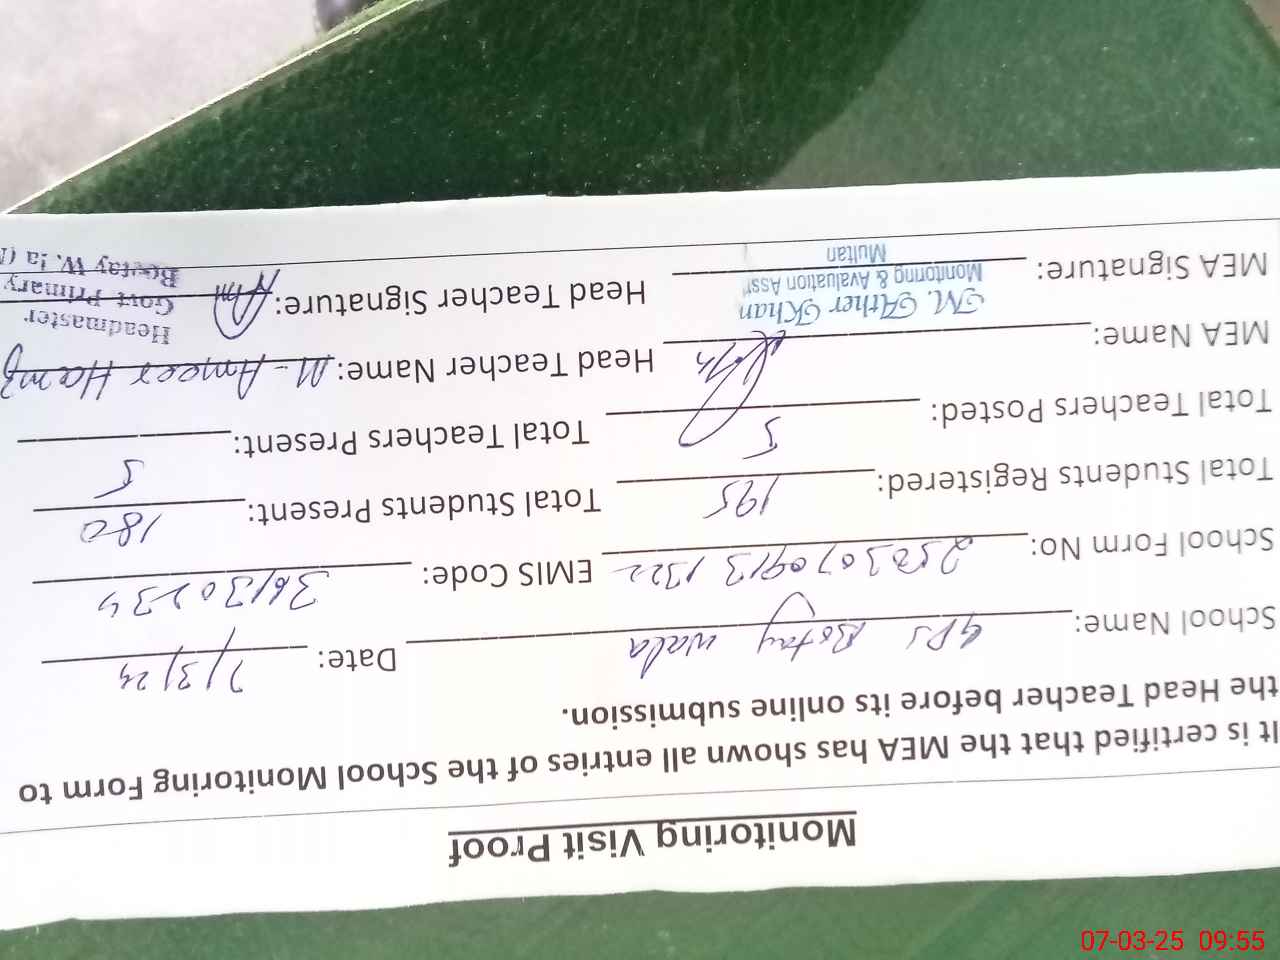 Monitoring Visit Proof
It is certified that the MEA has shown all entries of the School Monitoring Form to
the Head Teacher before its online submission.
School Name: GPS Botay wala Date: 7/3/25
School Form No: EMIS Code: 36130234
Total Students Registered: 195 Total Students Present: 180
Total Teachers Posted: 5 Total Teachers Present: 5
MEA Name: Head Teacher Name: M. Ameer Hamza
M. Ather Khan
Monitoring & Avaluation Asst
Multan
MEA Signature: Head Teacher Signature:
Headmaster
Govt Primary
Bootay W
07-03-25 09:55